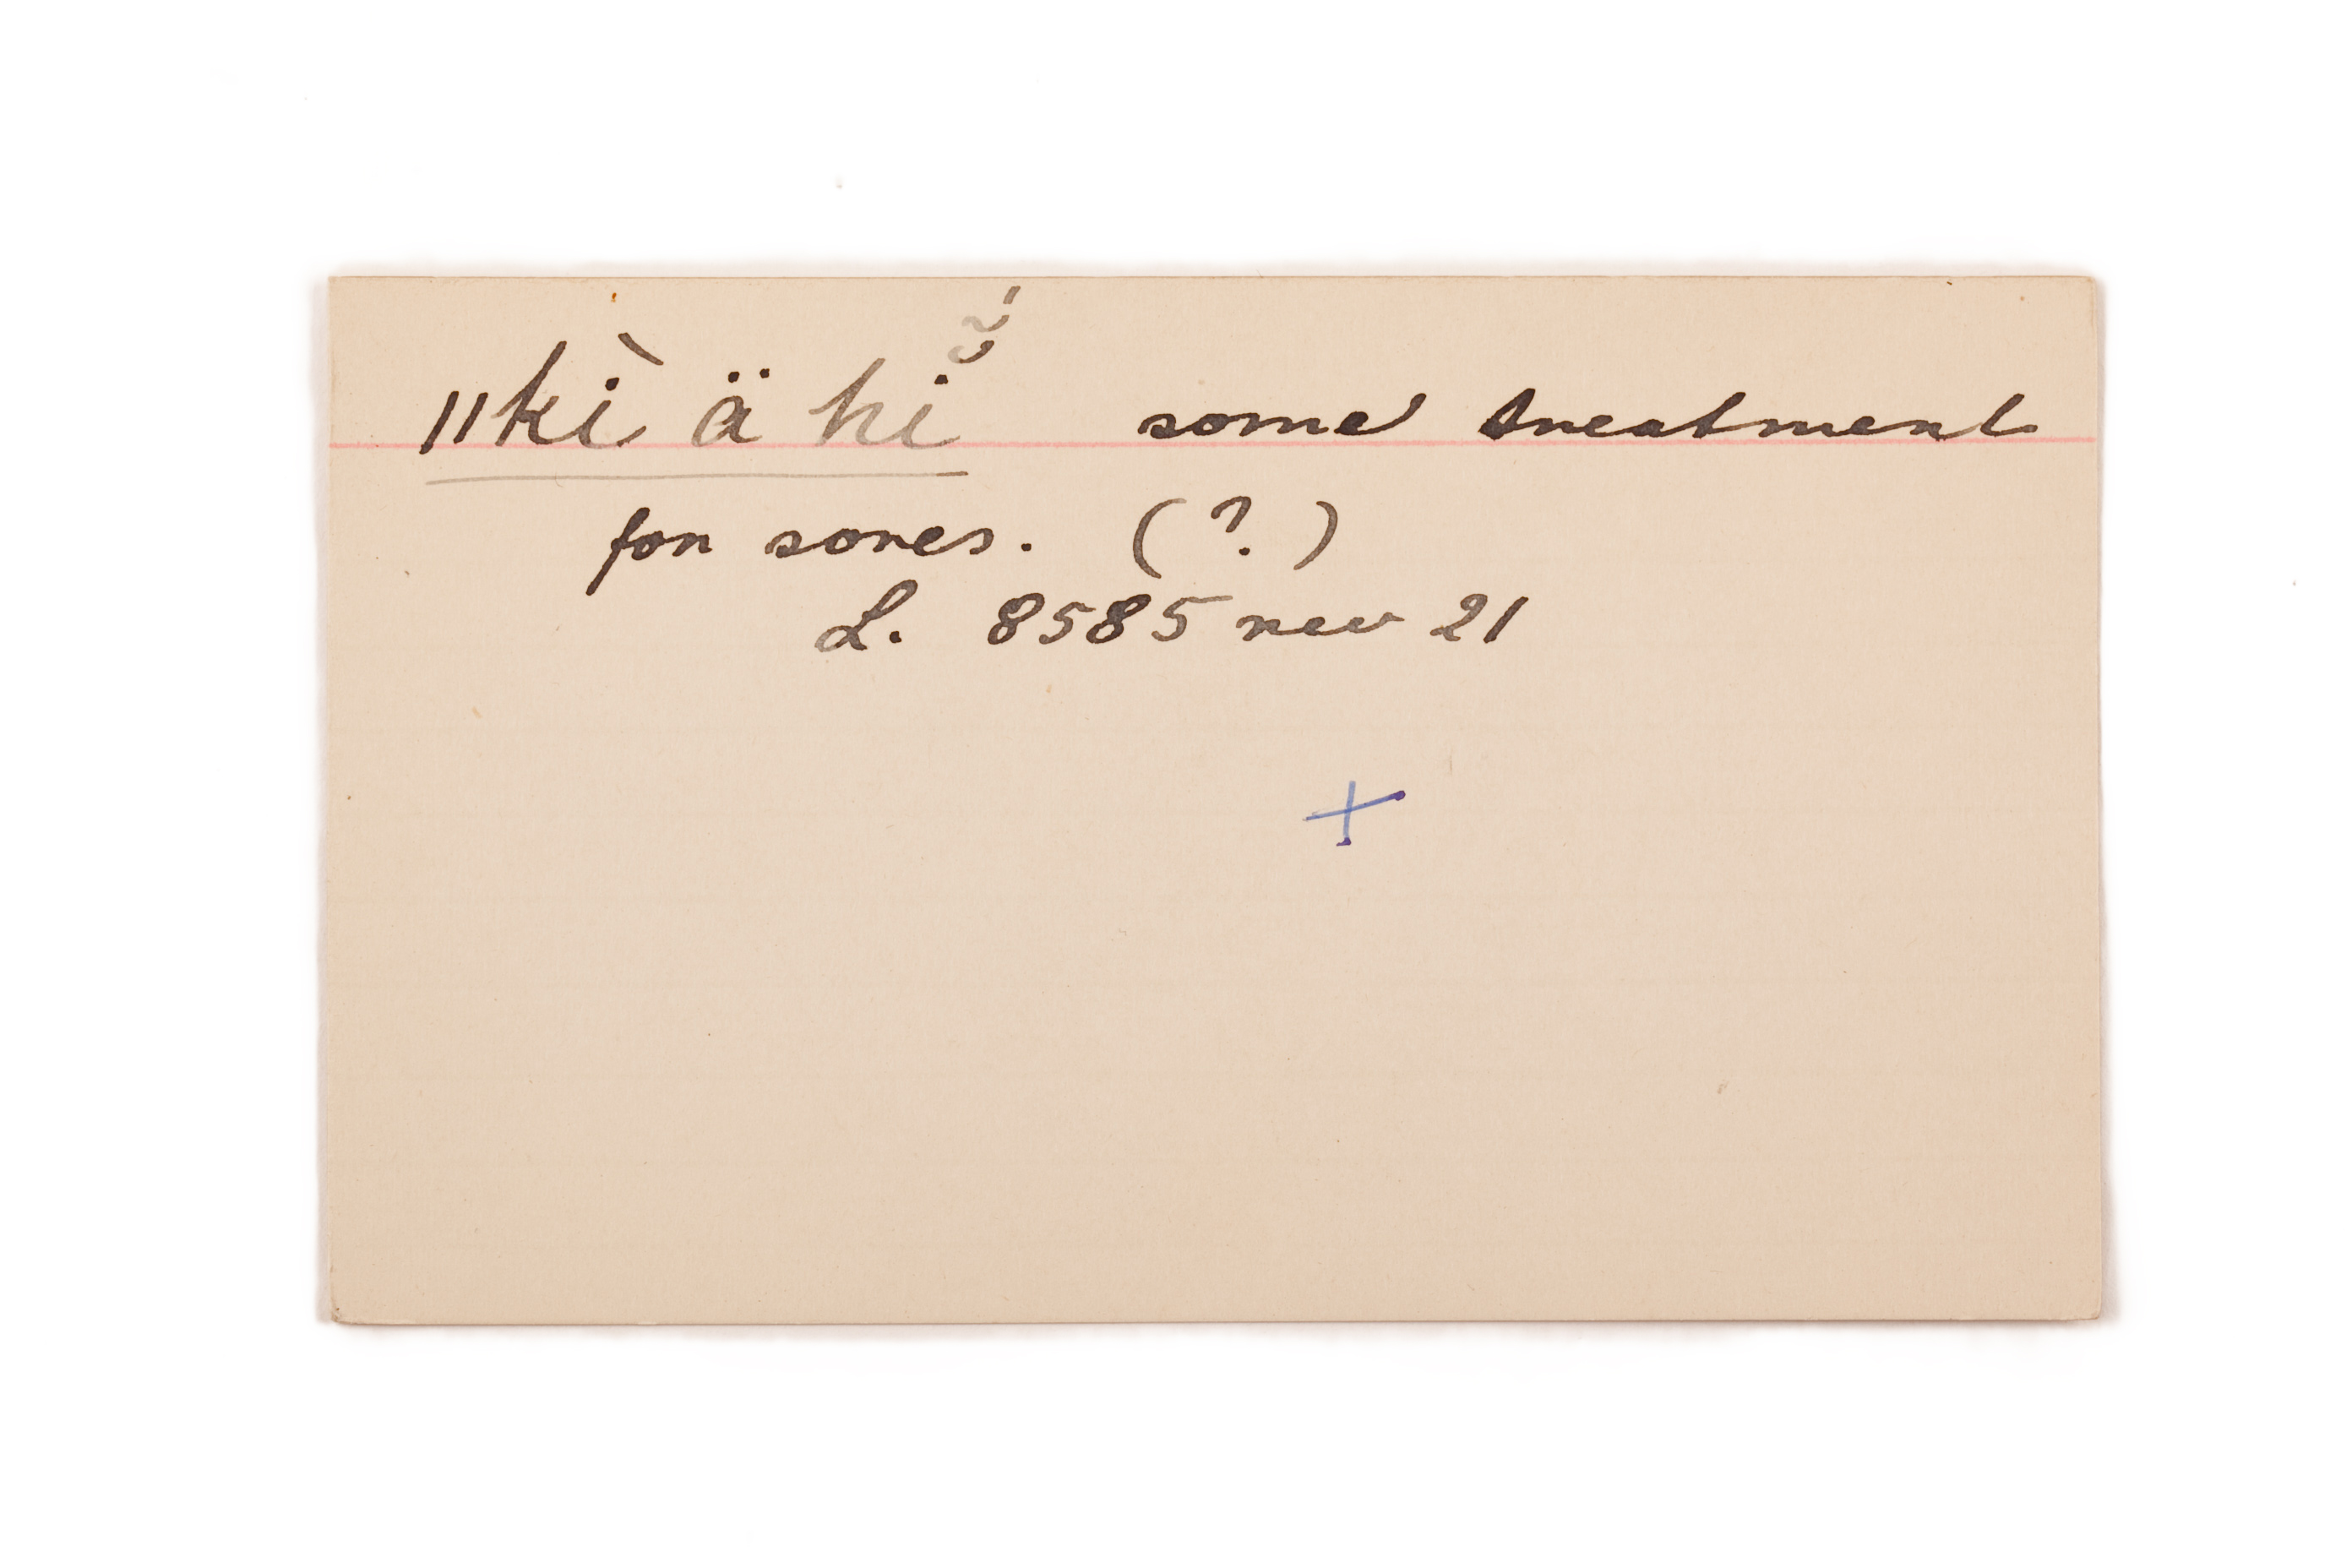 ǁkì ä hĭ̃́ some treatment
for sores. (?)
L. 8585 rev 21
+